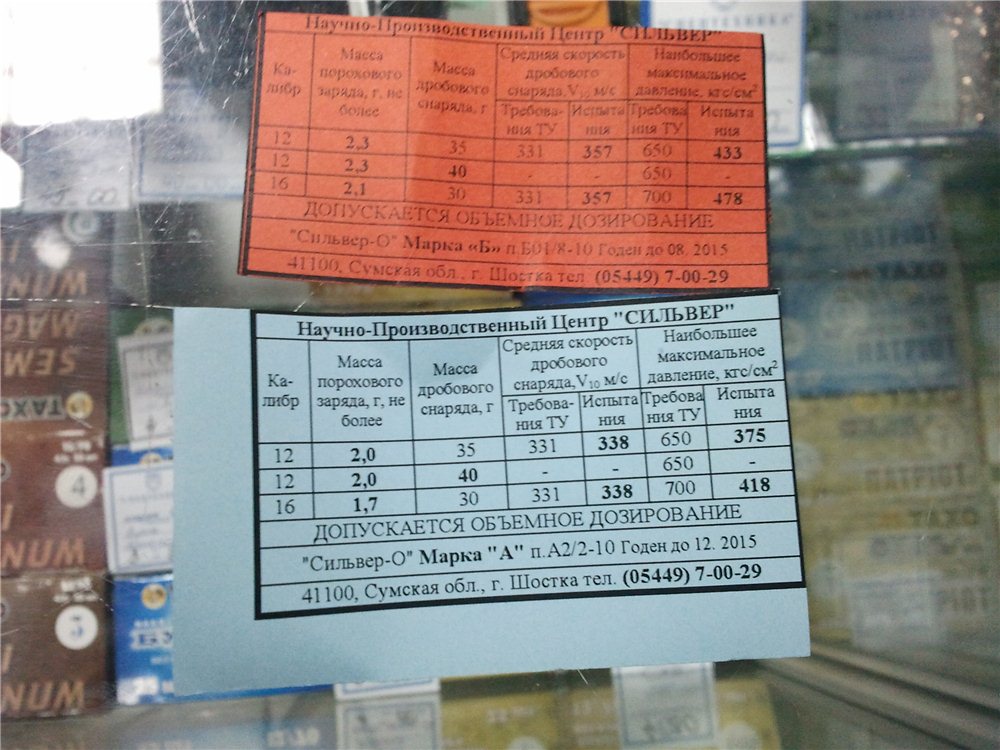 Научно-Производственный Центр "СИЛЬВЕР"
Ка-
либр
Масса
порохового
заряда, г, не
более
Масса
дробового
снаряда, г
Средняя скорость
дробового
снаряда,V10 м/с
Наибольшее
максимальное
давление, кгс/см2
Требова-
ния ТУ
Испыта
ния
Требова
ния ТУ
Испыта
ния
12 2,3 35 331 357 650 433
12 2,3 40 - - 650 -
16 2,1 30 331 357 700 478
ДОПУСКАЕТСЯ ОБЪЕМНОЕ ДОЗИРОВАНИЕ
"Сильвер-О" Марка «Б» п.Б01/8-10 Годен до 08. 2015
41100, Сумская обл., г. Шостка тел. (05449) 7-00-29
Научно-Производственный Центр "СИЛЬВЕР"
Ка-
либр
Масса
порохового
заряда, г, не
более
Масса
дробового
снаряда, г
Средняя скорость
дробового
снаряда,V10 м/с
Наибольшее
максимальное
давление, кгс/см2
Требова-
ния ТУ
Испыта
ния
Требова
ния ТУ
Испыта
ния
12 2,0 35 331 338 650 375
12 2,0 40 - - 650 -
16 1,7 30 331 338 700 418
ДОПУСКАЕТСЯ ОБЪЕМНОЕ ДОЗИРОВАНИЕ
"Сильвер-О" Марка "А" п.А2/2-10 Годен до 12. 2015
41100, Сумская обл., г. Шостка тел. (05449) 7-00-29
WUN
MAG
SEM
TAXO
4
WUN
3
WUN